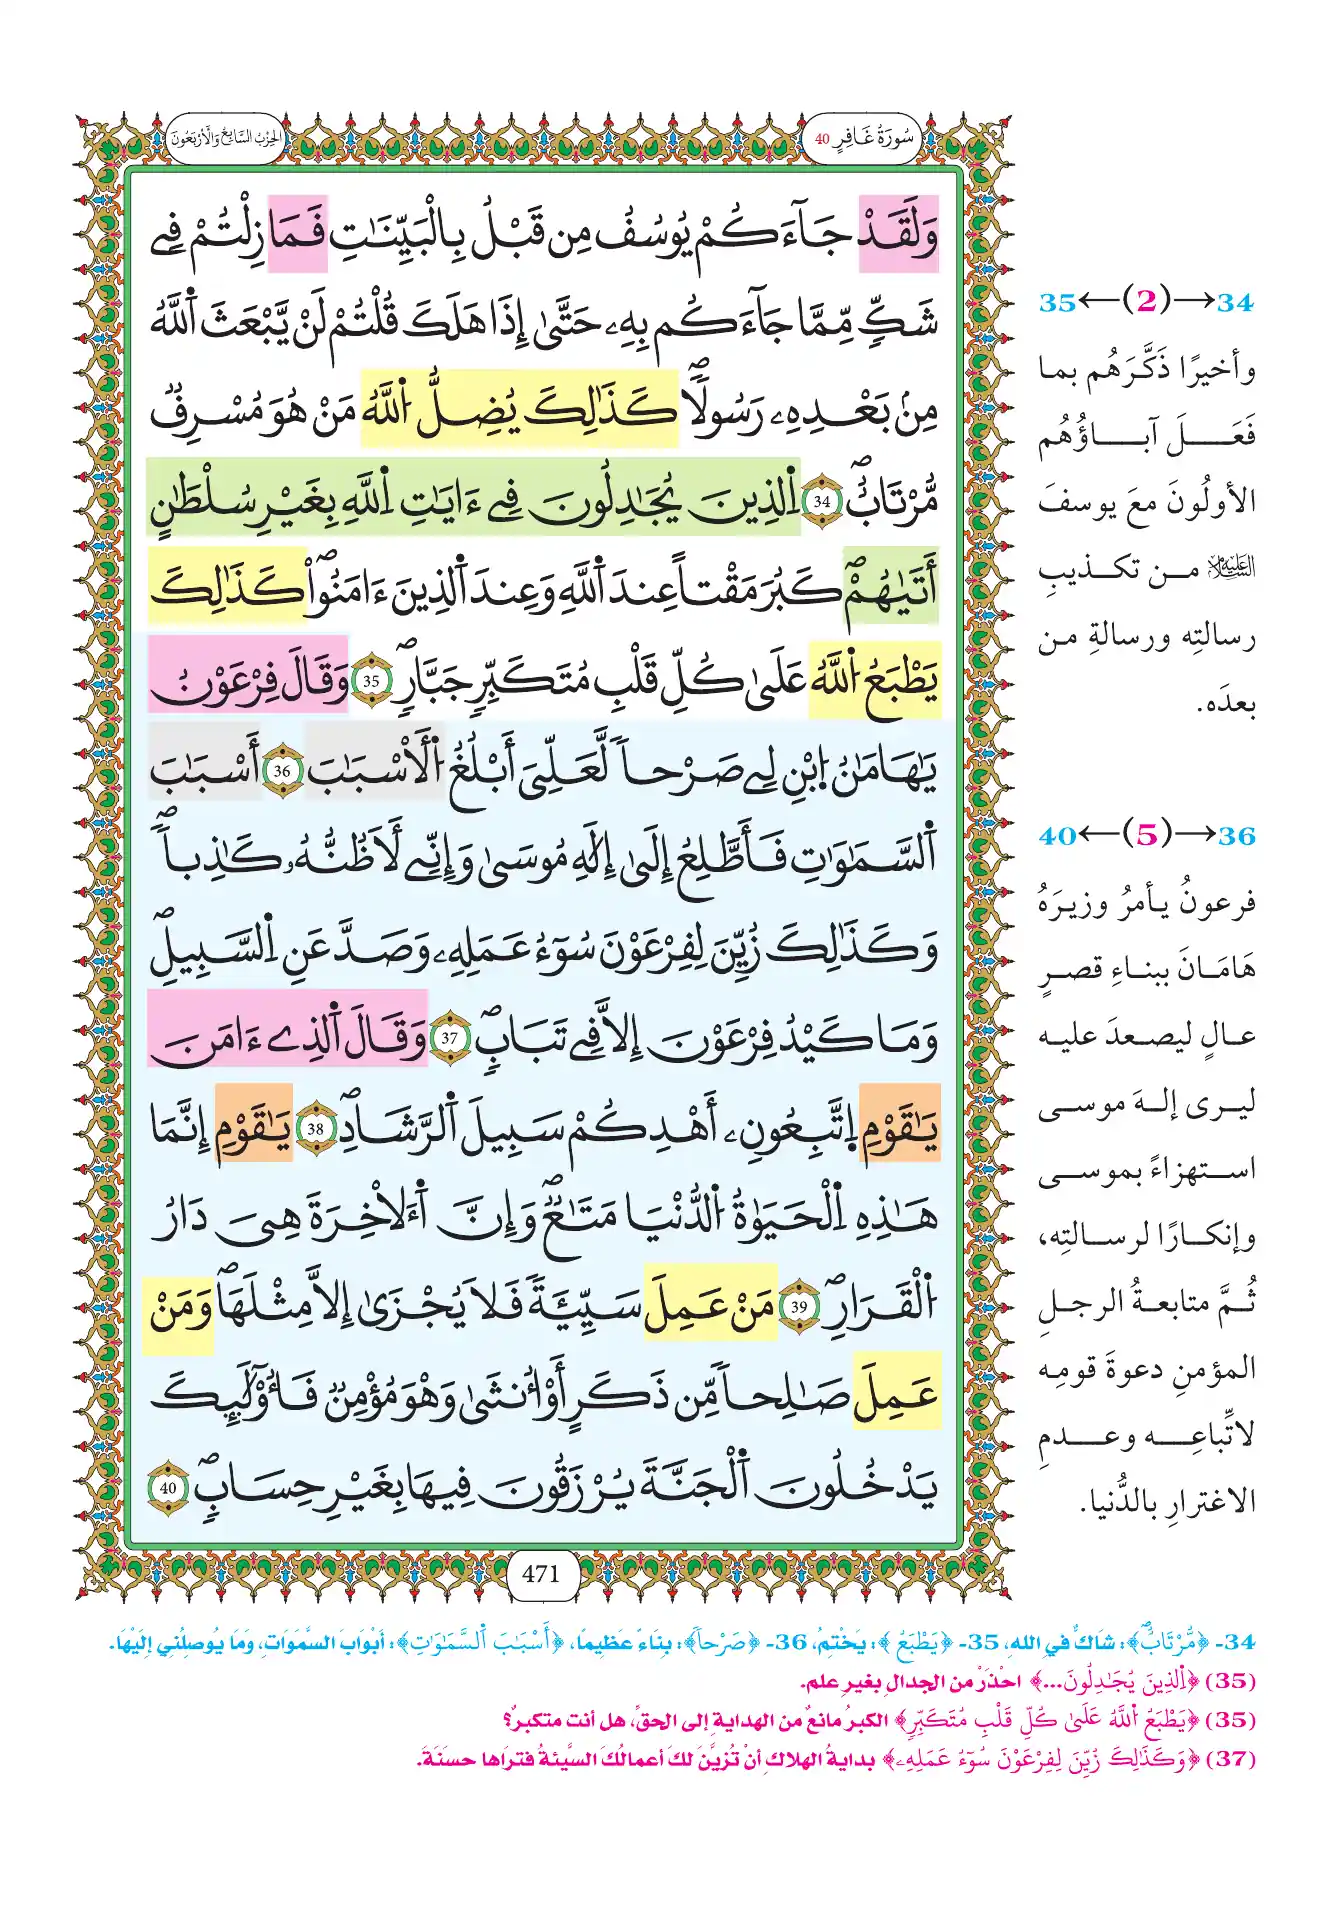 سُورَةُ غَافِرٍ 40
الحِزْبُ السَّابِعُ وَالأَرْبَعُونَ
وَلَقَدْ جَآءَكُمْ يُوسُفُ مِن قَبْلُ بِالْبَيِّنَٰتِ فَمَا زِلْتُمْ فِے
شَكٍّ مِّمَّا جَآءَكُم بِهِۦ حَتَّىٰ إِذَا هَلَكَ قُلْتُمْ لَنْ يَّبْعَثَ اَ۬للَّهُ
مِنۢ بَعْدِهِۦ رَسُولاٗۖ كَذَٰلِكَ يُضِلُّ اُ۬للَّهُ مَنْ هُوَ مُسْرِفٞ
مُّرْتَابٌۖ 34 اِ۬لذِينَ يُجَٰدِلُونَ فِےٓ ءَايَٰتِ اِ۬للَّهِ بِغَيْرِ سُلْطَٰنٍ
أَتَيٰهُمْۖ كَبُرَ مَقْتاً عِندَ اَ۬للَّهِ وَعِندَ اَ۬لذِينَ ءَامَنُواْۖ كَذَٰلِكَ
يَطْبَعُ اُ۬للَّهُ عَلَىٰ كُلِّ قَلْبِ مُتَكَبِّرٖ جَبَّارٖۖ 35 وَقَالَ فِرْعَوْنُ
يَٰهَامَٰنُ اُ۪بْنِ لِے صَرْحاٗ لَّعَلِّيَ أَبْلُغُ اُ۬لْأَسْبَٰبَ 36 أَسْبَٰبَ
اَ۬لسَّمَٰوَٰتِ فَأَطَّلِعُ إِلَىٰٓ إِلَٰهِ مُوسَىٰ وَإِنِّے لَأَظُنُّهُۥ كَٰذِباٗۖ
وَكَذَٰلِكَ زُيِّنَ لِفِرْعَوْنَ سُوٓءُ عَمَلِهِۦ وَصَدَّ عَنِ اِ۬لسَّبِيلِۖ
وَمَا كَيْدُ فِرْعَوْنَ إِلَّا فِے تَبَابٖۖ 37 وَقَالَ اَ۬لذِےٓ ءَامَنَ
يَٰقَوْمِ اِ۪تَّبِعُونِۦٓ أَهْدِكُمْ سَبِيلَ اَ۬لرَّشَادِۖ 38 يَٰقَوْمِ إِنَّمَا
هَٰذِهِ اِ۬لْحَيَوٰةُ اُ۬لدُّنْيَا مَتَٰعٞۖ وَإِنَّ اَ۬لْأٓخِرَةَ هِيَ دَارُ
اُ۬لْقَرَارِۖ 39 مَنْ عَمِلَ سَيِّئَةٗ فَلَا يُجْزَىٰٓ إِلَّا مِثْلَهَاۖ وَمَنْ
عَمِلَ صَٰلِحاٗ مِّن ذَكَرٍ أَوُ ا۟نثَىٰ وَهْوَ مُؤْمِنٞ فَأُوْلَٰٓئِكَ
يَدْخُلُونَ اَ۬لْجَنَّةَ يُرْزَقُونَ فِيهَا بِغَيْرِ حِسَابٖۖ 40
471
34→(2)←35
وأخيرًا ذَكَّرَهُم بما
فَعَلَ آباؤُهُم
الأولُونَ معَ يوسفَ
عليه السلام من تكذيبِ
رسالتِه ورسالةِ من
بعدَه.
36→(5)←40
فرعونُ يأمرُ وزيرَهُ
هَامَانَ ببناءِ قصرٍ
عالٍ ليصعدَ عليه
ليرى إلهَ موسى
استهزاءً بموسى
وإنكارًا لرسالتِه،
ثُمَّ متابعةُ الرجلِ
المؤمنِ دعوةَ قومِه
لاتِّباعِه وعدمِ
الاغترارِ بالدُّنيا.
34- ﴿مُّرْتَابٌۖ﴾: شَاكٌّ في اللهِ، 35- ﴿يَطْبَعُ﴾: يَخْتِمُ، 36- ﴿صَرْحاٗ﴾: بِنَاءً عَظِيمًا، ﴿أَسْبَٰبَ اَ۬لسَّمَٰوَٰتِ﴾: أبْوَابَ السَّمَوَاتِ، وَمَا يُوصِلُنِي إِلَيْهَا.
(35) ﴿اِ۬لذِينَ يُجَٰدِلُونَ...﴾ احْذَرْ من الجدالِ بغيرِ علم.
(35) ﴿يَطْبَعُ اُ۬للَّهُ عَلَىٰ كُلِّ قَلْبِ مُتَكَبِّرٖ﴾ الكبرُ مانعٌ من الهدايةِ إلى الحقِّ، هل أنت متكبرٌ؟
(37) ﴿وَكَذَٰلِكَ زُيِّنَ لِفِرْعَوْنَ سُوٓءُ عَمَلِهِۦ﴾ بدايةُ الهلاكِ أنْ تُزيَّنَ لكَ أعمالُكَ السَّيئةُ فتراها حسنَةَ.